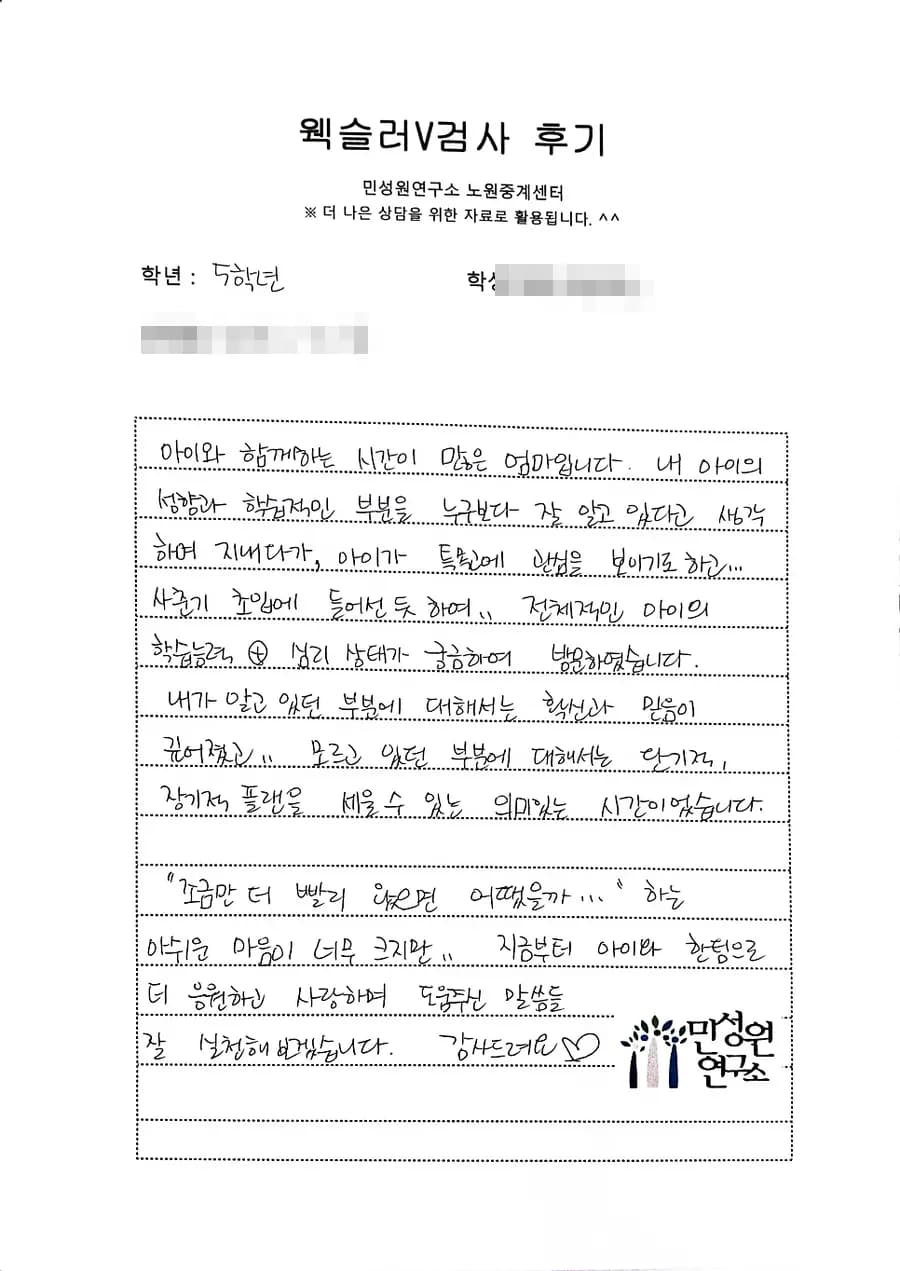 웩슬러V검사 후기
민성원연구소 노원중계센터
※ 더 나은 상담을 위한 자료로 활용됩니다. ^^
학년 : 5학년
아이와 함께하는 시간이 많은 엄마입니다. 내 아이의
성향과 학습적인 부분을 누구보다 잘 알고 있다고 생각
하며 지내다가, 아이가 특목고에 관심을 보이기도 하고...
사춘기 초입에 들어선 듯 하여.. 전체적인 아이의
학습능력 ⊕ 심리 상태가 궁금하여 방문하였습니다.
내가 알고 있던 부분에 대해서는 확신과 믿음이
깊어졌고.. 모르고 있던 부분에 대해서는 단기적,
장기적 플랜을 세울 수 있는 의미있는 시간이었습니다.
"조금만 더 빨리 왔으면 어땠을까..." 하는
아쉬운 마음이 너무 크지만.. 지금부터 아이와 한팀으로
더 응원하고 사랑하며 도움주신 말씀들
잘 실천해 보겠습니다. 감사드려요♡
민성원
연구소